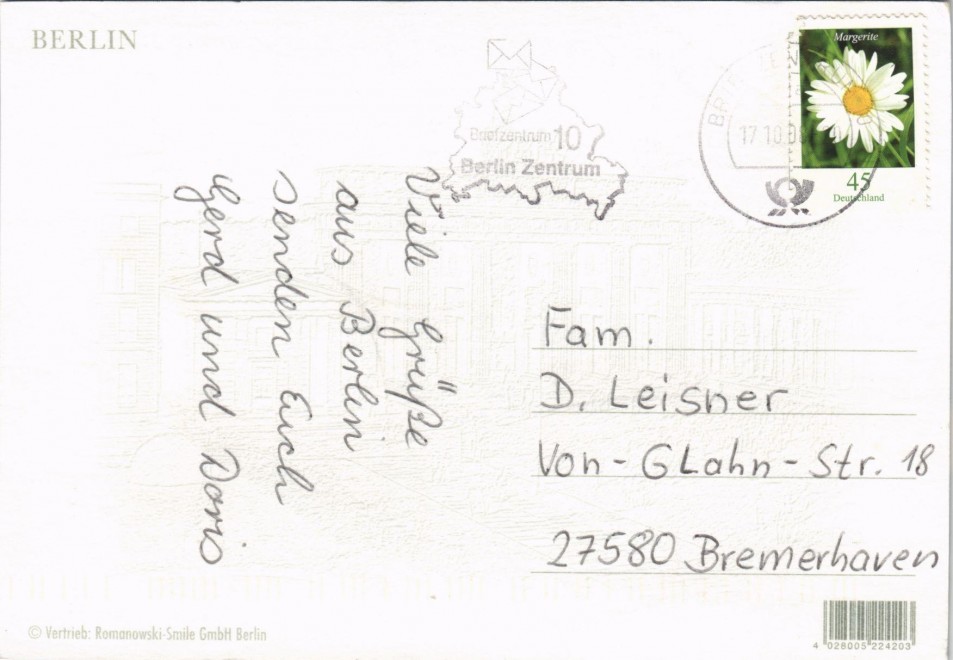 BERLIN
Briefzentrum 10
Berlin Zentrum
17.10.
Margerite
45
Deutschland
Viele Grüße
aus Berlin
senden Euch
Gerd und Doris
Fam.
D. Leisner
Von-GLahn-Str. 18
27580 Bremerhaven
© Vertrieb: Romanowski-Smile GmbH Berlin
4 028005 224203